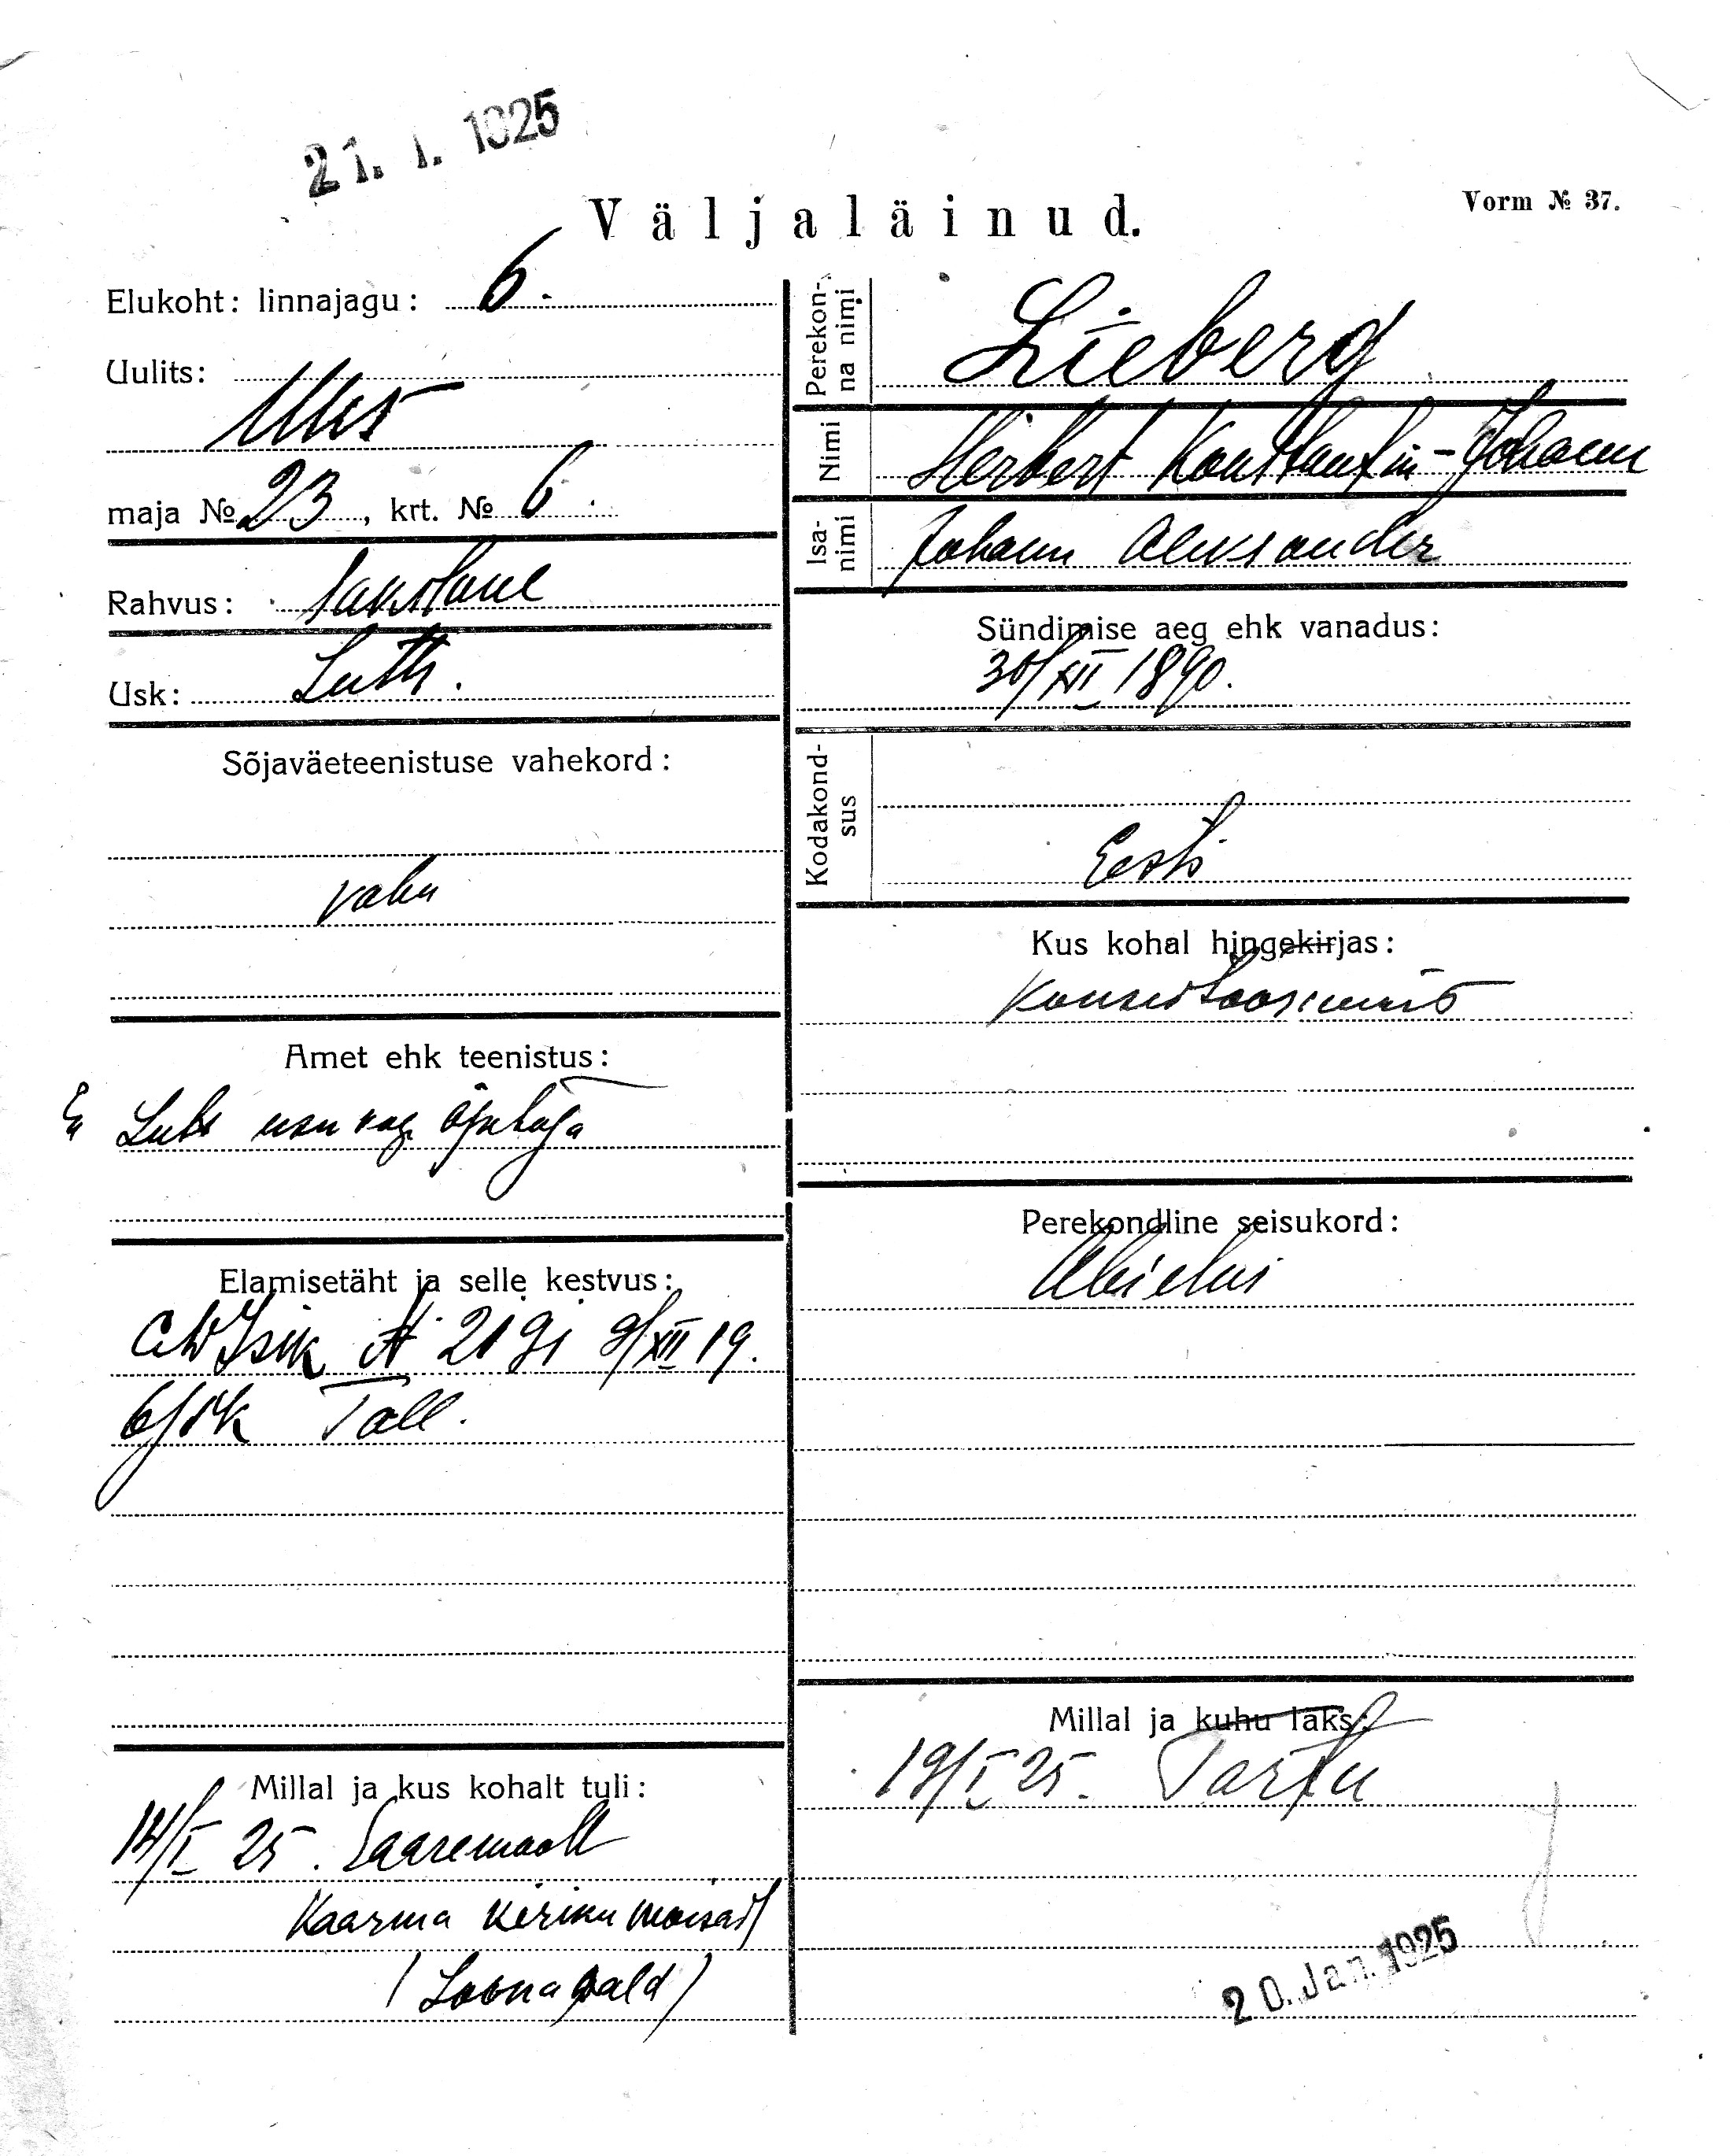 21. 1. 1925
Väljaläinud.
Vorm № 37.
Elukoht: linnajagu: 6.
Uulits:
Uus
maja № 23, krt. № 6.
Rahvus: sakslane
Usk: Luth.
Sõjaväeteenistuse vahekord:
vaba
Amet ehk teenistus:
usu õpetaja
Elamisetäht ja selle kestvus:
Isik № 2191 9/XII 19.
6/jsk Tall.
Millal ja kus kohalt tuli:
14/I 25. Saaremaalt
Kaarma Kiriku moisast
(Loona vald)
Perekonna nimi
Lieberg
Nimi
Herbert Konstantin-Johann
Isanimi
Johann Aleksander
Sündimise aeg ehk vanadus:
30/XII 1890.
Kodakondsus
Eesti
Kus kohal hingekirjas:
Perekondline seisukord:
Abielus
Millal ja kuhu läks:
19/I 25. Tartu
20. Jan. 1925